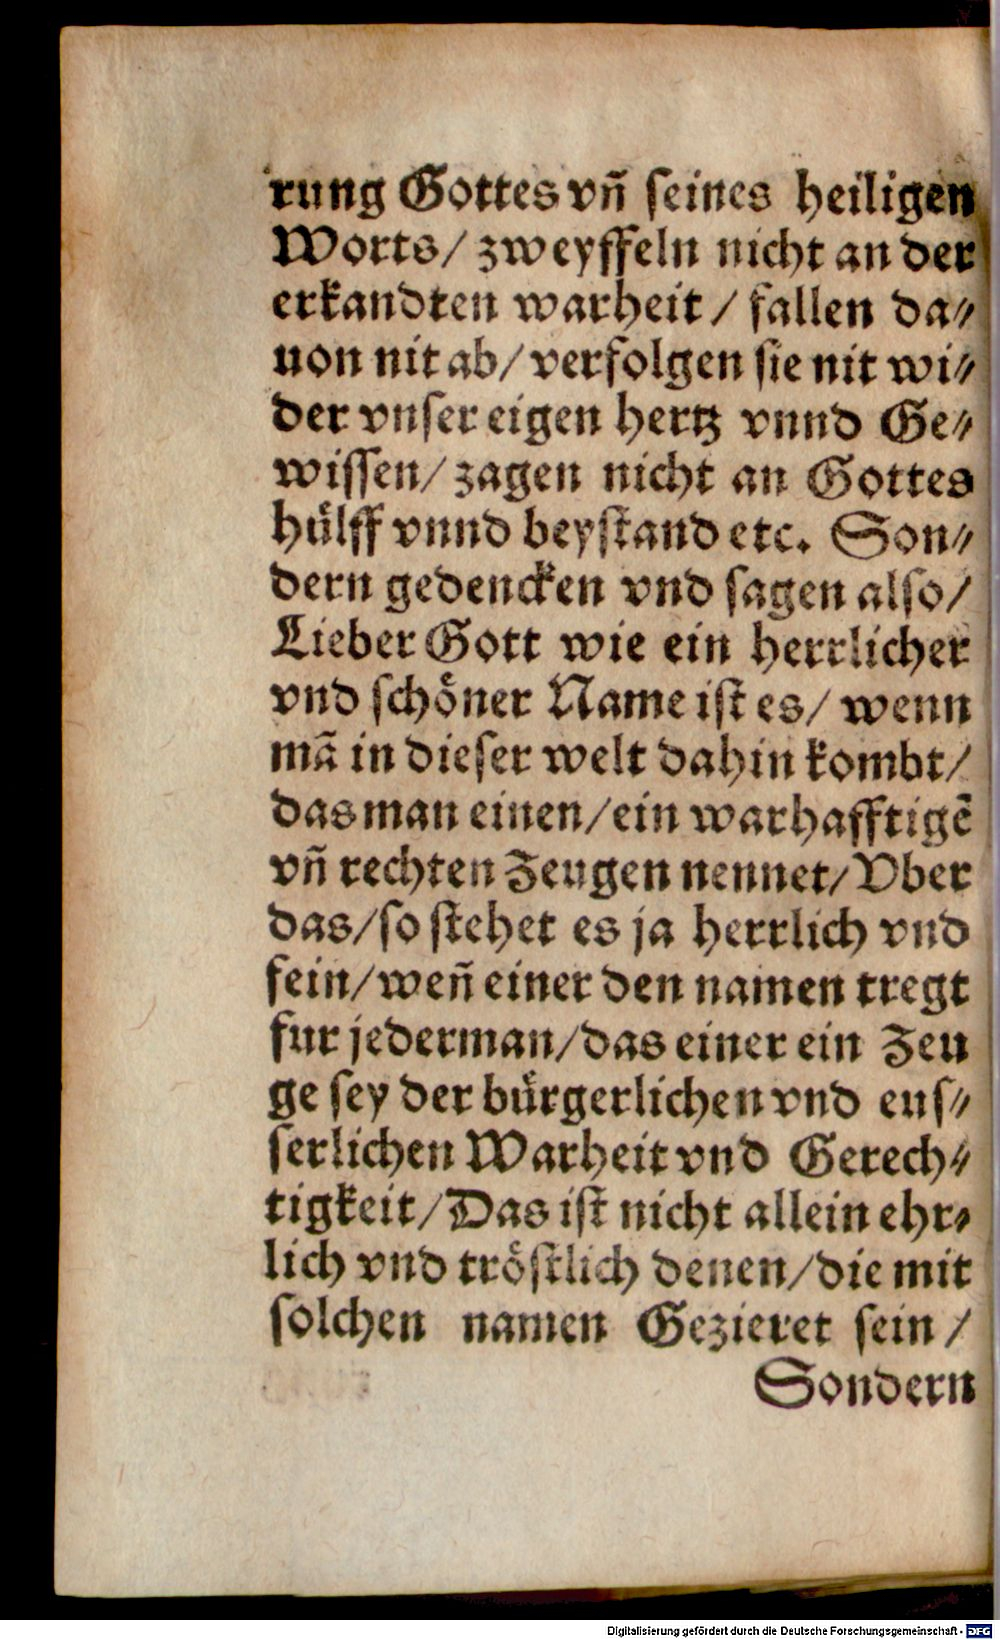 rung Gottes vñ seines heiligen
Worts/ zweyffeln nicht an der
erkandten warheit / fallen da⸗
uon nit ab/ verfolgen sie nit wi⸗
der vnser eigen hertz vnnd Ge⸗
wissen/ zagen nicht an Gottes
hülff vnnd beystand etc. Son⸗
dern gedencken vnd sagen also/
Lieber Gott wie ein herrlicher
vnd schöner Name ist es/ wenn
mã in dieser welt dahin kombt/
das man einen/ein warhafftigẽ
vñ rechten Zeugen nennet/ Vber
das/so stehet es ja herrlich vnd
fein/weñ einer den namen tregt
fur jederman/das einer ein Zeu
ge sey der bürgerlichen vnd eus⸗
serlichen Warheit vnd Gerech⸗
tigkeit/Das ist nicht allein ehr⸗
lich vnd tröstlich denen/die mit
solchen namen Gezieret sein /
Sondern
Digitalisierung gefördert durch die Deutsche Forschungsgemeinschaft - DFG